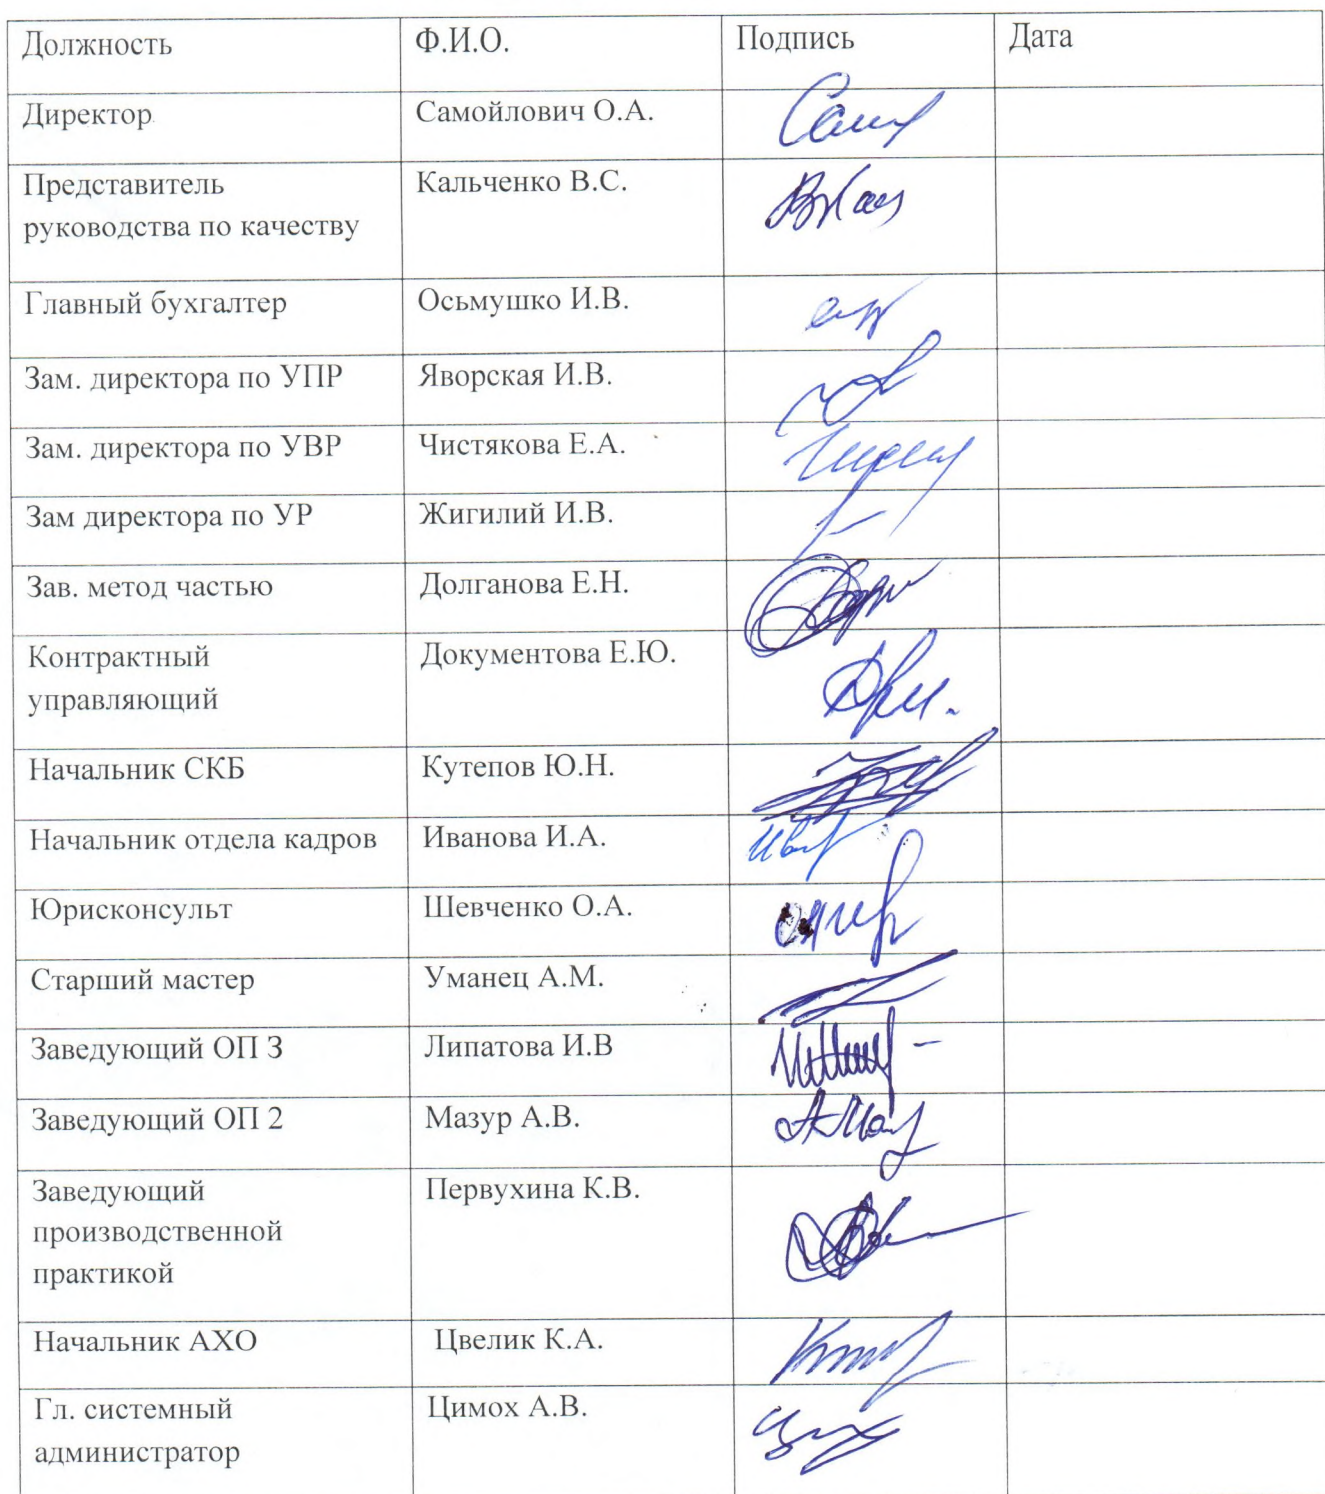 Должность Ф.И.О. Подпись Дата
Директор Самойлович О.А.
Представитель Кальченко В.С.
руководства по качеству
Главный бухгалтер Осьмушко И.В.
Зам. директора по УПР Яворская И.В.
Зам. директора по УВР Чистякова Е.А.
Зам директора по УР Жигилий И.В.
Зав. метод частью Долганова Е.Н.
Контрактный Документова Е.Ю.
управляющий
Начальник СКБ Кутепов Ю.Н.
Начальник отдела кадров Иванова И.А.
Юрисконсульт Шевченко О.А.
Старший мастер Уманец А.М.
Заведующий ОП 3 Липатова И.В
Заведующий ОП 2 Мазур А.В.
Заведующий Первухина К.В.
производственной
практикой
Начальник АХО Цвелик К.А.
Гл. системный Цимох А.В.
администратор